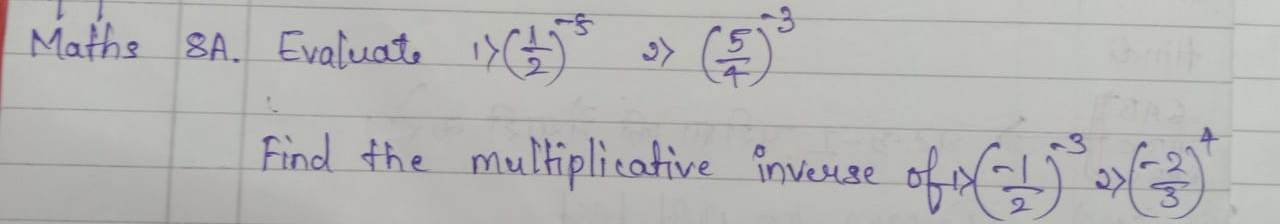 Maths 8A. Evaluate 1) (1/2)^-5 2) (5/4)^-3
Find the multiplicative inverse of 1) (-1/2)^-3 2) (-2/3)^4